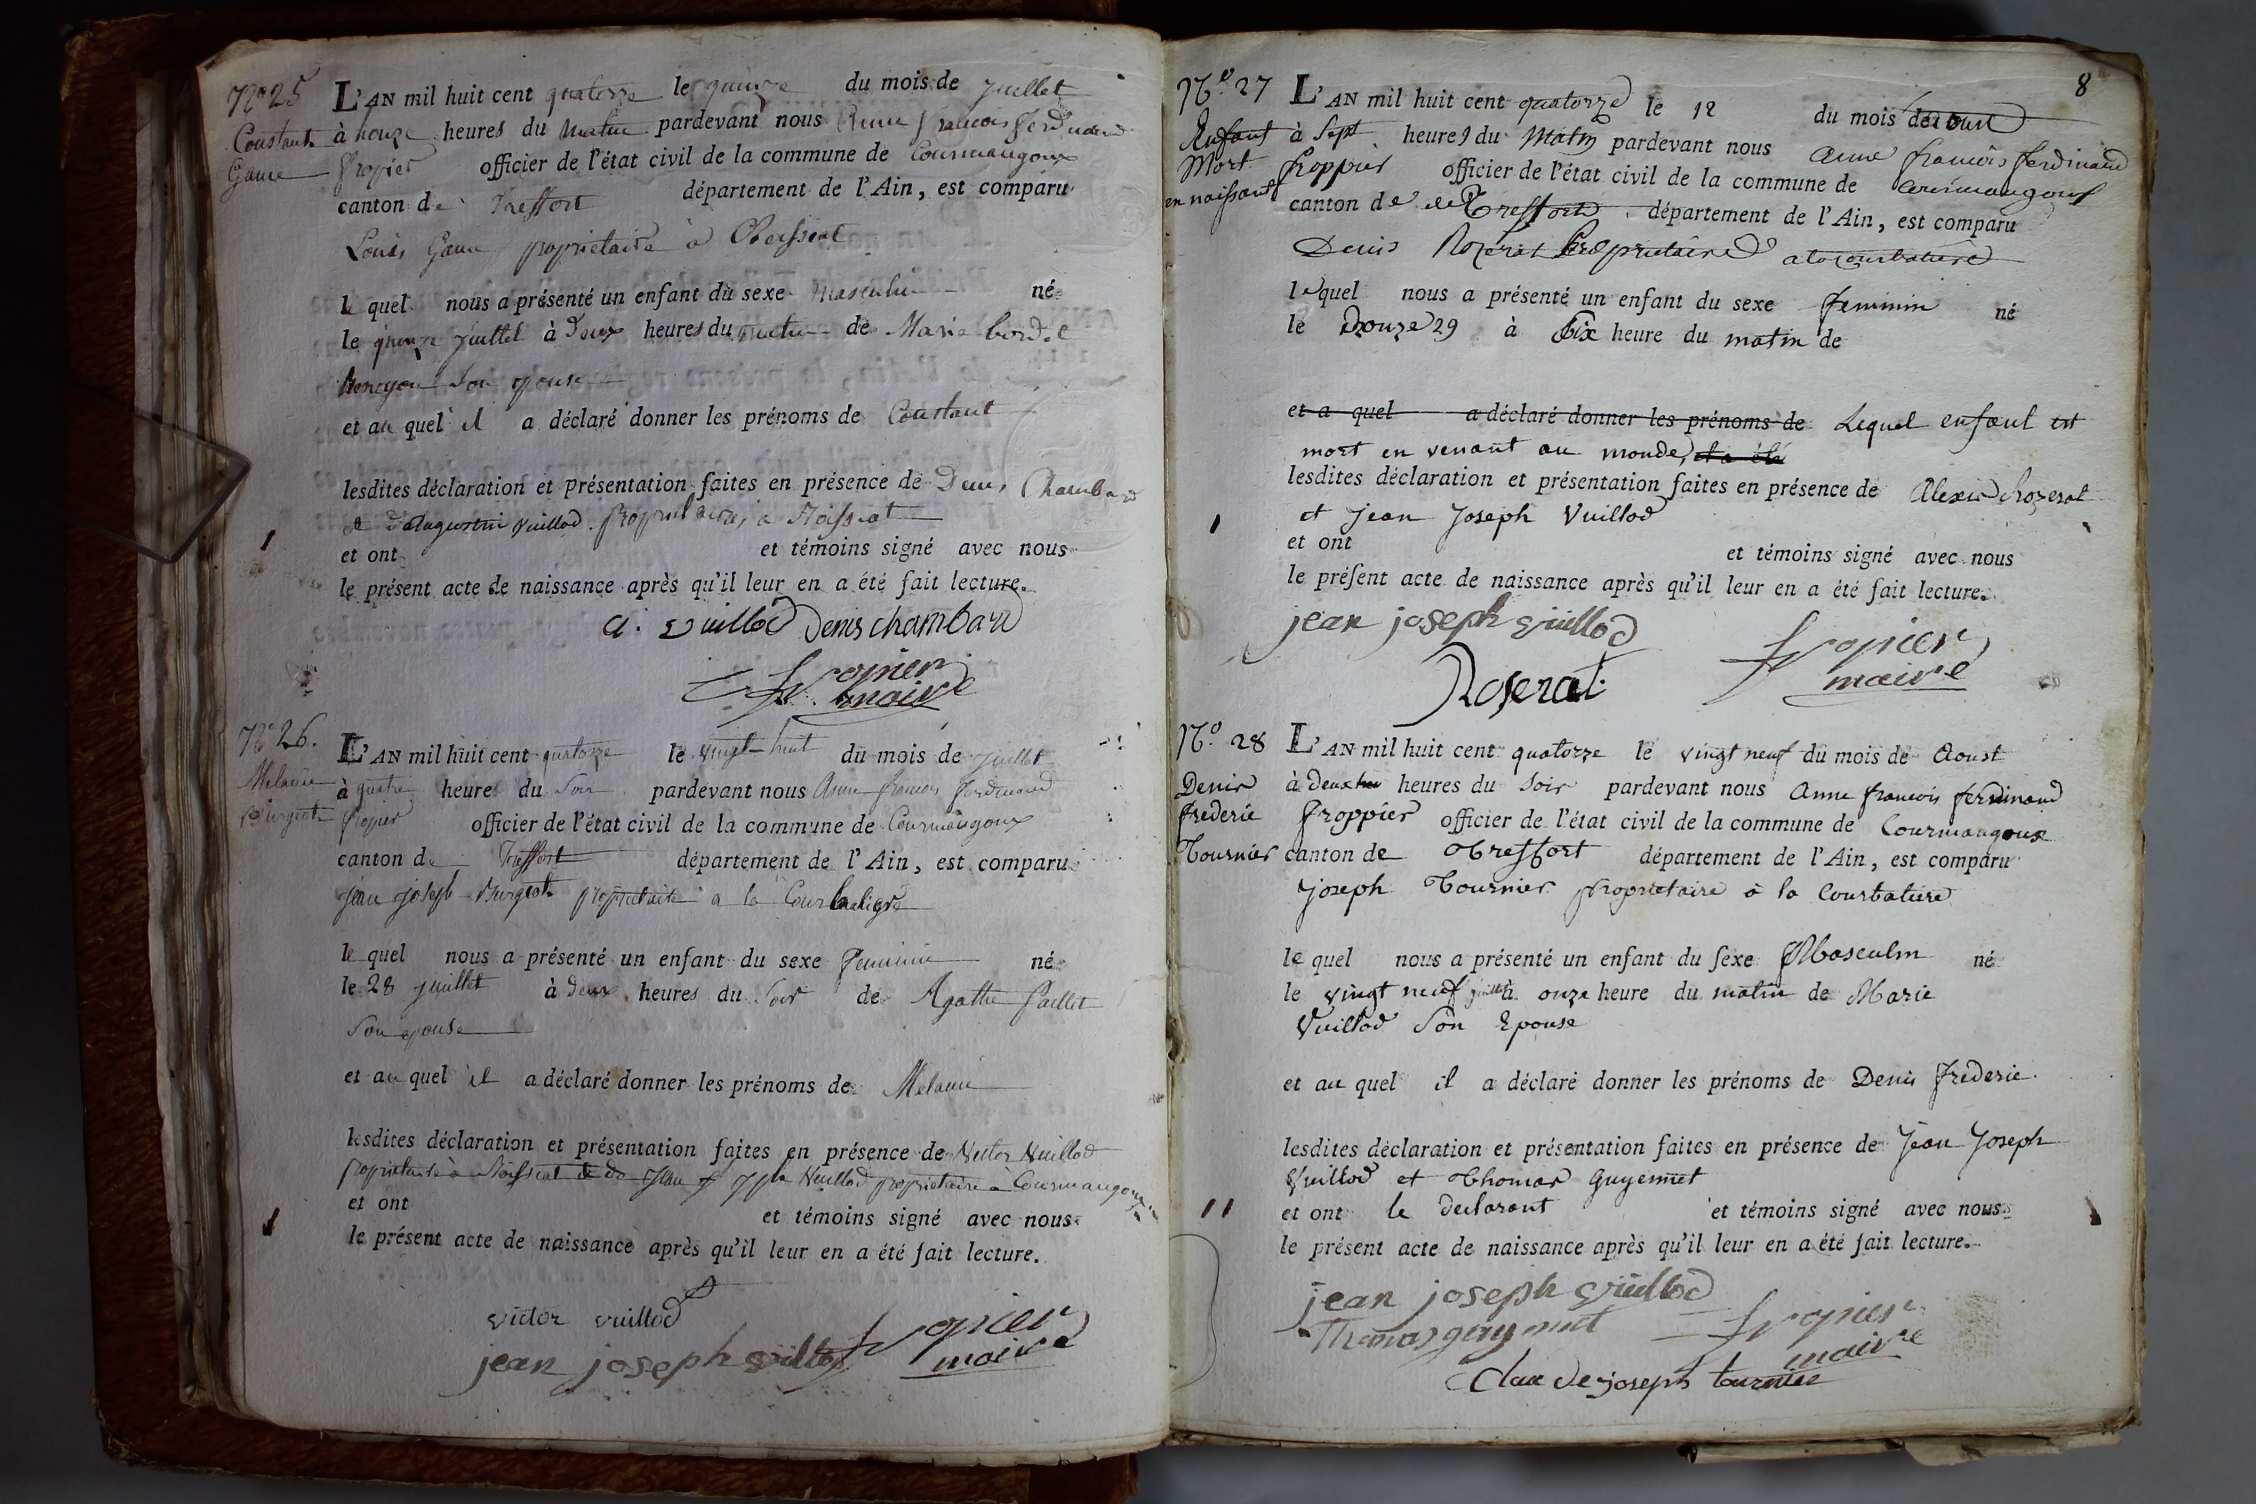 No 25
Constant
Game
L'AN mil huit cent quatorze le quinze du mois de juillet
à honze heures du matin pardevant nous Anne françois ferdinand
fropier officier de l'état civil de la commune de Courmangoux
canton de Treffort département de l'Ain, est comparu
Louis Game propriétaire à
le quel nous a présenté un enfant du sexe masculin né
le quinze juillet à deux heures du matin de Marie
son epouse
et au quel il a déclaré donner les prénoms de Constant
lesdites déclaration et présentation faites en présence de Denis Chambard
et d'augustin vuillod propriétaires à Roissiat
et ont et témoins signé avec nous
le présent acte de naissance après qu'il leur en a été fait lecture.
a. vuillod Denis chambard
fropier
maire
No 26.
Melanie
Burgiot
L'AN mil huit cent quatorze le vingt huit du mois de juillet
à quatre heures du soir pardevant nous Anne francois ferdinand
fropier officier de l'état civil de la commune de Courmangoux
canton de Treffort département de l'Ain, est comparu
jean joseph Burgiot propriétaire à la Courbatiere
le quel nous a présenté un enfant du sexe feminin né
le 28 juillet à deux heures du soir de Agathe Paillet
son epouse
et au quel il a déclaré donner les prénoms de Melanie
lesdites déclaration et présentation faites en présence de Victor Vuillod
propriétaire à Roissiat et de jean jph Vuillod propriétaire à Courmangoux
et ont et témoins signé avec nous
le présent acte de naissance après qu'il leur en a été fait lecture.
victor vuillod
jean joseph vuillod fropier
maire
8
No 27
Enfant
mort
en naissant
L'AN mil huit cent quatorze le 12 du mois de
à sept heures du matin pardevant nous anne francois ferdinand
froppier officier de l'état civil de la commune de Courmangoux
canton de de Treffort département de l'Ain, est comparu
Denis Rozerat Propriétaire a la courbatiere
lequel nous a présenté un enfant du sexe feminin né
le douze 29 à six heure du matin de
et a quel a déclaré donner les prénoms de Lequel enfant est
mort en venant au monde, et a été
lesdites déclaration et présentation faites en présence de Alexis Rozerat
et jean joseph Vuillod
et ont et témoins signé avec nous
le présent acte de naissance après qu'il leur en a été fait lecture.
jean joseph vuillod
fropier
maire
Roserat
No 28
Denis
frederic
Tournier
L'AN mil huit cent quatorze le vingt neuf du mois de Aoust
à deux heures du soir pardevant nous anne francois ferdinand
froppier officier de l'état civil de la commune de Courmangoux
canton de Treffort département de l'Ain, est comparu
joseph Tournier proprietaire à la Courbatiere
le quel nous a présenté un enfant du sexe Masculin né
le vingt neuf juillet à onze heure du matin de Marie
Vuillod son Epouse
et au quel il a déclaré donner les prénoms de Denis frederic
lesdites déclaration et présentation faites en présence de jean joseph
Vuillod et Thomas guyennet
et ont le declarant et témoins signé avec nous
le présent acte de naissance après qu'il leur en a été fait lecture.
jean joseph vuillod
Thomas guyennet fropier
maire
Claude joseph tournier